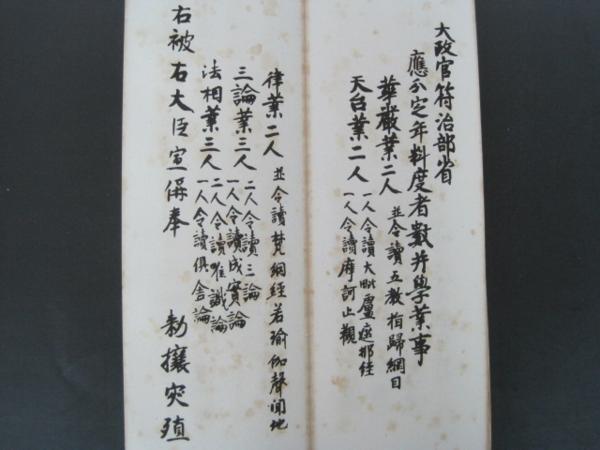 大政官符治部省
應分定年料度者數并學業事
華嚴業二人
並令讀五教指歸綱目
天台業二人
一人令讀大毗盧遮那経
一人令讀摩訶止觀
律業二人
並令讀梵網經若瑜伽聲聞地
三論業三人
二人令讀三論
一人令讀成實論
法相業三人
二人令讀唯識論
一人令讀俱舍論
右被右大臣宣偁奉
勅攘灾殖